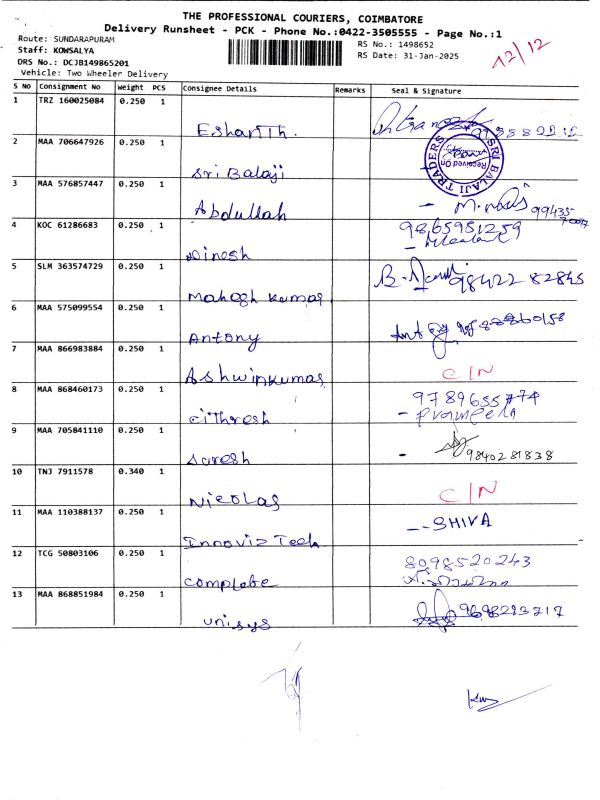 THE PROFESSIONAL COURIERS, COIMBATORE
Delivery Runsheet - PCK - Phone No.:0422-3505555 - Page No.:1
Route: SUNDARAPURAM
RS No.: 1498652
12/12
Staff: KOWSALYA
RS Date: 31-Jan-2025
DRS No.: DCJB149865201
Vehicle: Two Wheeler Delivery
S No Consignment No Weight PCS Consignee Details Remarks Seal & Signature
1 TRZ 160025084 0.250 1
Esharith.
2 MAA 706647926 0.250 1
Sri Balaji
SRI BALAJI TRADERS
Received On
3 MAA 576857447 0.250 1
Abdullah
4 KOC 61286683 0.250 1
Dinesh
9865951259
5 SLM 363574729 0.250 1
Mahesh kumar
98422 82845
6 MAA 575099554 0.250 1
Antony
7 MAA 866983884 0.250 1
Ashwinkumar
C/N
8 MAA 868460173 0.250 1
Cithresh
- Prameela
9 MAA 705841110 0.250 1
Suresh
- 9840281838
10 TNJ 7911578 0.340 1
Nicolas
C/N
11 MAA 110388137 0.250 1
Innoviz Tech
-- SHIVA
12 TCG 50803106 0.250 1
complete
8098520243
13 MAA 868851984 0.250 1
unisys
9698293717